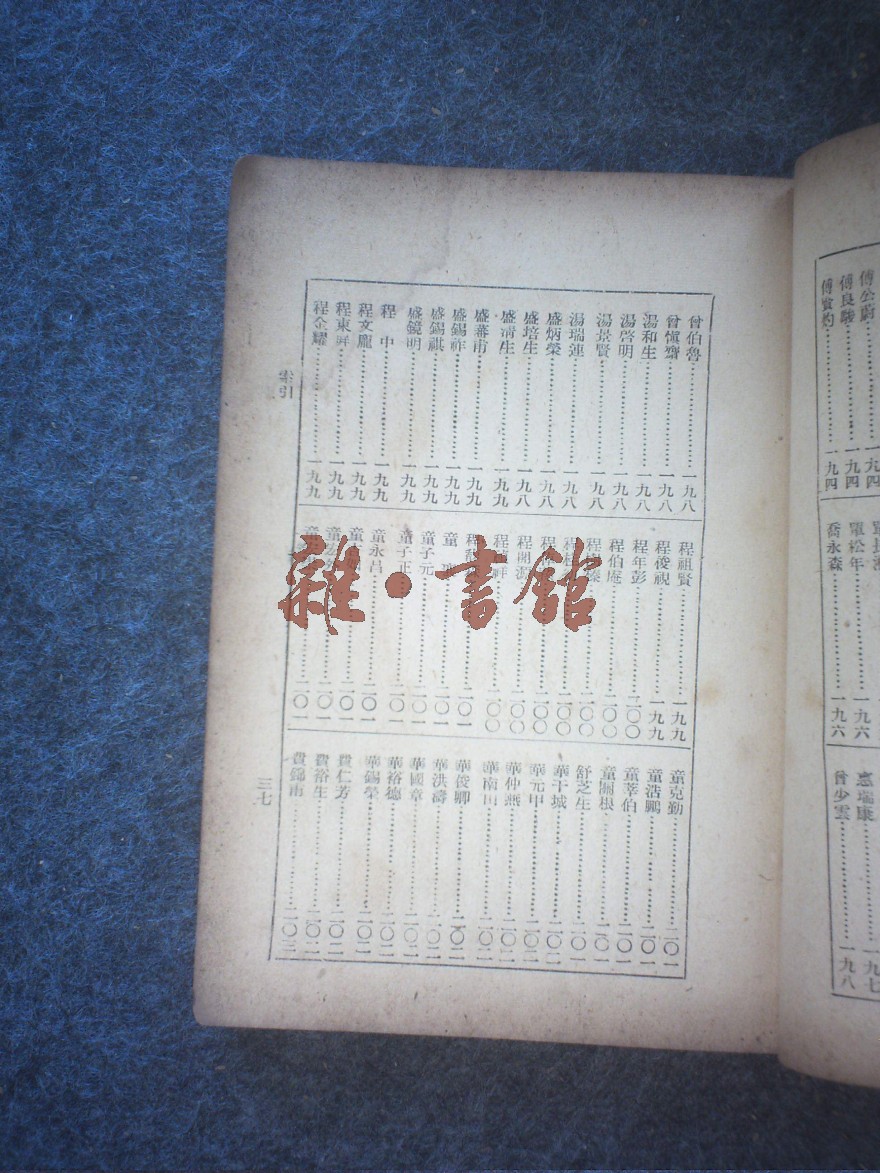 傅公蔚⋯⋯一九四
傅良駿⋯⋯一九四
⋯⋯一九四
喬永森⋯⋯一九六
單松年⋯⋯一九六
惠瑞康⋯⋯一九七
曾少雲⋯⋯一九八
曾伯魯⋯⋯一九八
曾愼齋⋯⋯一九八
湯和生⋯⋯一九八
湯啓明⋯⋯一九八
湯景賢⋯⋯一九八
湯瑞蓮⋯⋯一九八
盛炳榮⋯⋯一九八
盛培生⋯⋯一九八
盛清生⋯⋯一九九
盛蕃甫⋯⋯一九九
盛錫祚⋯⋯一九九
盛錫祺⋯⋯一九九
盛鏡明⋯⋯一九九
程 中⋯⋯一九九
程文龐⋯⋯一九九
程東祥⋯⋯一九九
程金耀⋯⋯一九九
程祖賢⋯⋯一九九
程俊視⋯⋯一九九
程年彭⋯⋯二〇〇
程伯庵⋯⋯二〇〇
程⋯⋯二〇〇
程⋯⋯二〇〇
程⋯⋯二〇〇
程開源⋯⋯二〇〇
程祥⋯⋯二〇〇
程⋯⋯二〇一
童⋯⋯二〇一
童子元⋯⋯二〇一
童子正⋯⋯二〇一
童永昌⋯⋯二〇一
童⋯⋯二〇一
童⋯⋯二〇一
童⋯⋯二〇一
童克勤⋯⋯二〇一
童浩鵬⋯⋯二〇一
童莘伯⋯⋯二〇一
童爾根⋯⋯二〇一
舒芝生⋯⋯二〇一
華干城⋯⋯二〇二
華元甲⋯⋯二〇二
華仲燕⋯⋯二〇二
華南田⋯⋯二〇二
華俊卿⋯⋯二〇二
華洪濤⋯⋯二〇二
華國章⋯⋯二〇二
華裕德⋯⋯二〇二
華錫榮⋯⋯二〇二
費仁芳⋯⋯二〇二
費裕生⋯⋯二〇二
費錦甫⋯⋯二〇三
索引
三七
雜·書館